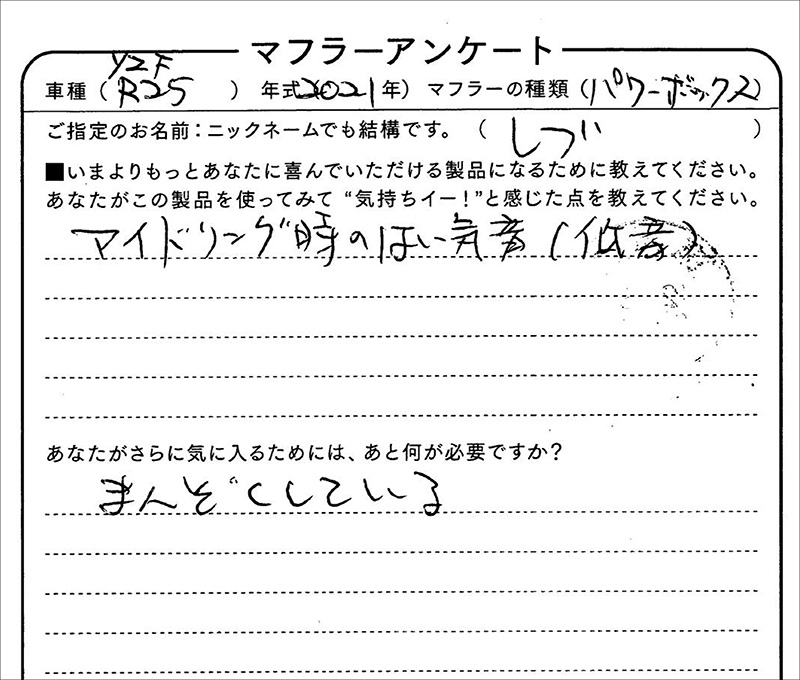 マフラーアンケート
車種（YZF R25） 年式（2021年） マフラーの種類（パワーボックス）
ご指定のお名前：ニックネームでも結構です。（しづ）
■いまよりもっとあなたに喜んでいただける製品になるために教えてください。
あなたがこの製品を使ってみて “気持ちイー！”と感じた点を教えてください。
アイドリング時のはい気音（低音）、
あなたがさらに気に入るためには、あと何が必要ですか？
まんぞくしている